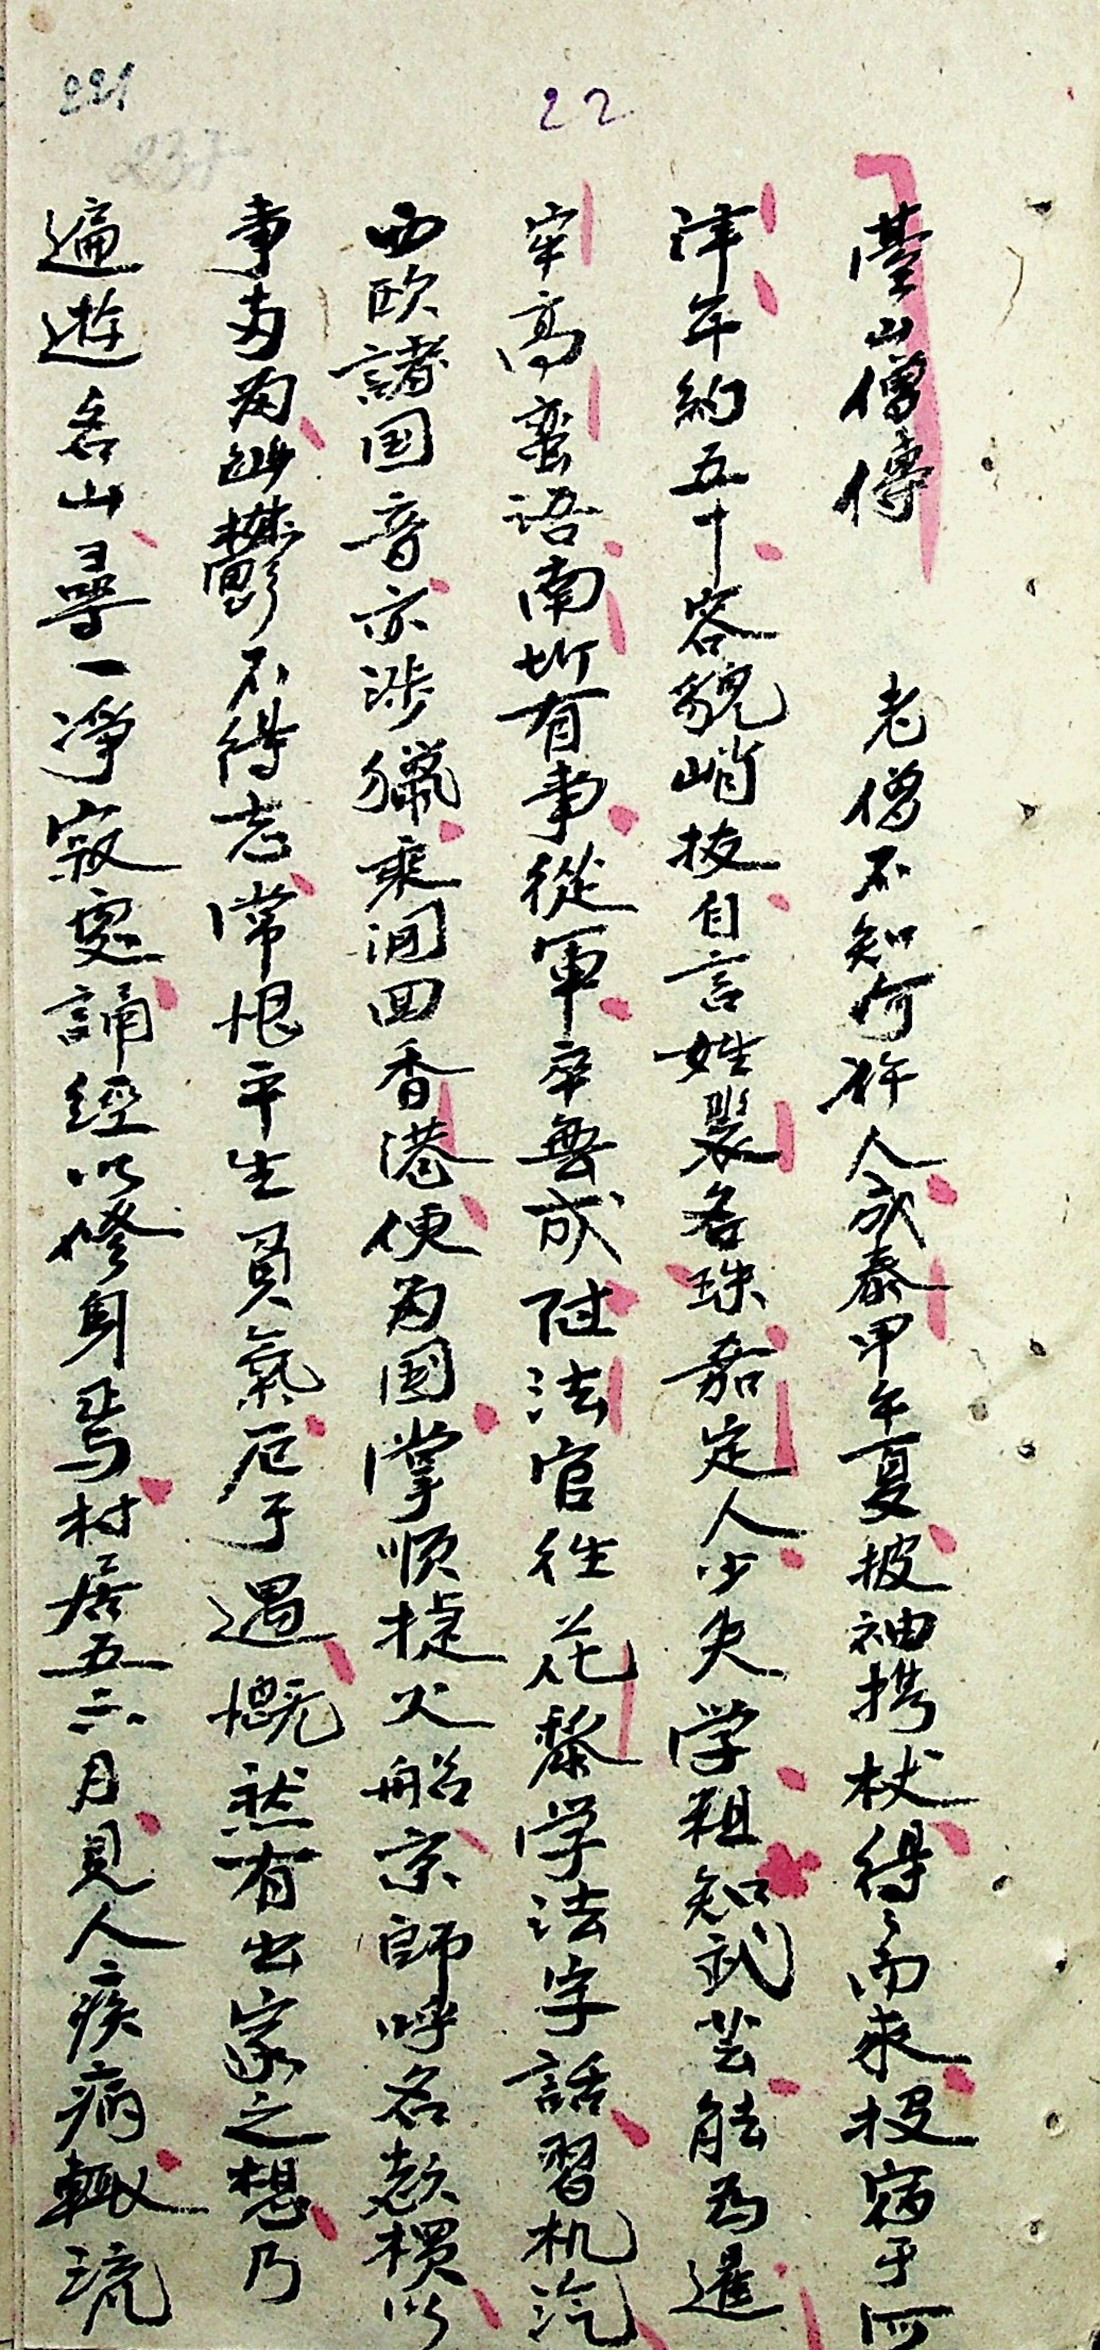 221
22
237
臺山僧傳 老僧不知何許人成泰甲午夏披袖携杖得〻而來投宿于河
津年約五十容貌峭拔自言姓裴名珠嘉定人少失学粗知武芸能為暹
牢高蛮語南圻有事從軍卒無成陪法官往花黎学法字話習机汽
西欧諸国音亦涉獵乘间回香港便為国掌順捷火船京師呼名敖槓以
事为為幽欝不得志常恨平生負氣厄于遇慨然有出家之想乃
遍遊名山尋一凈寂處誦經以修身焉村居五六月見人疾病輙流